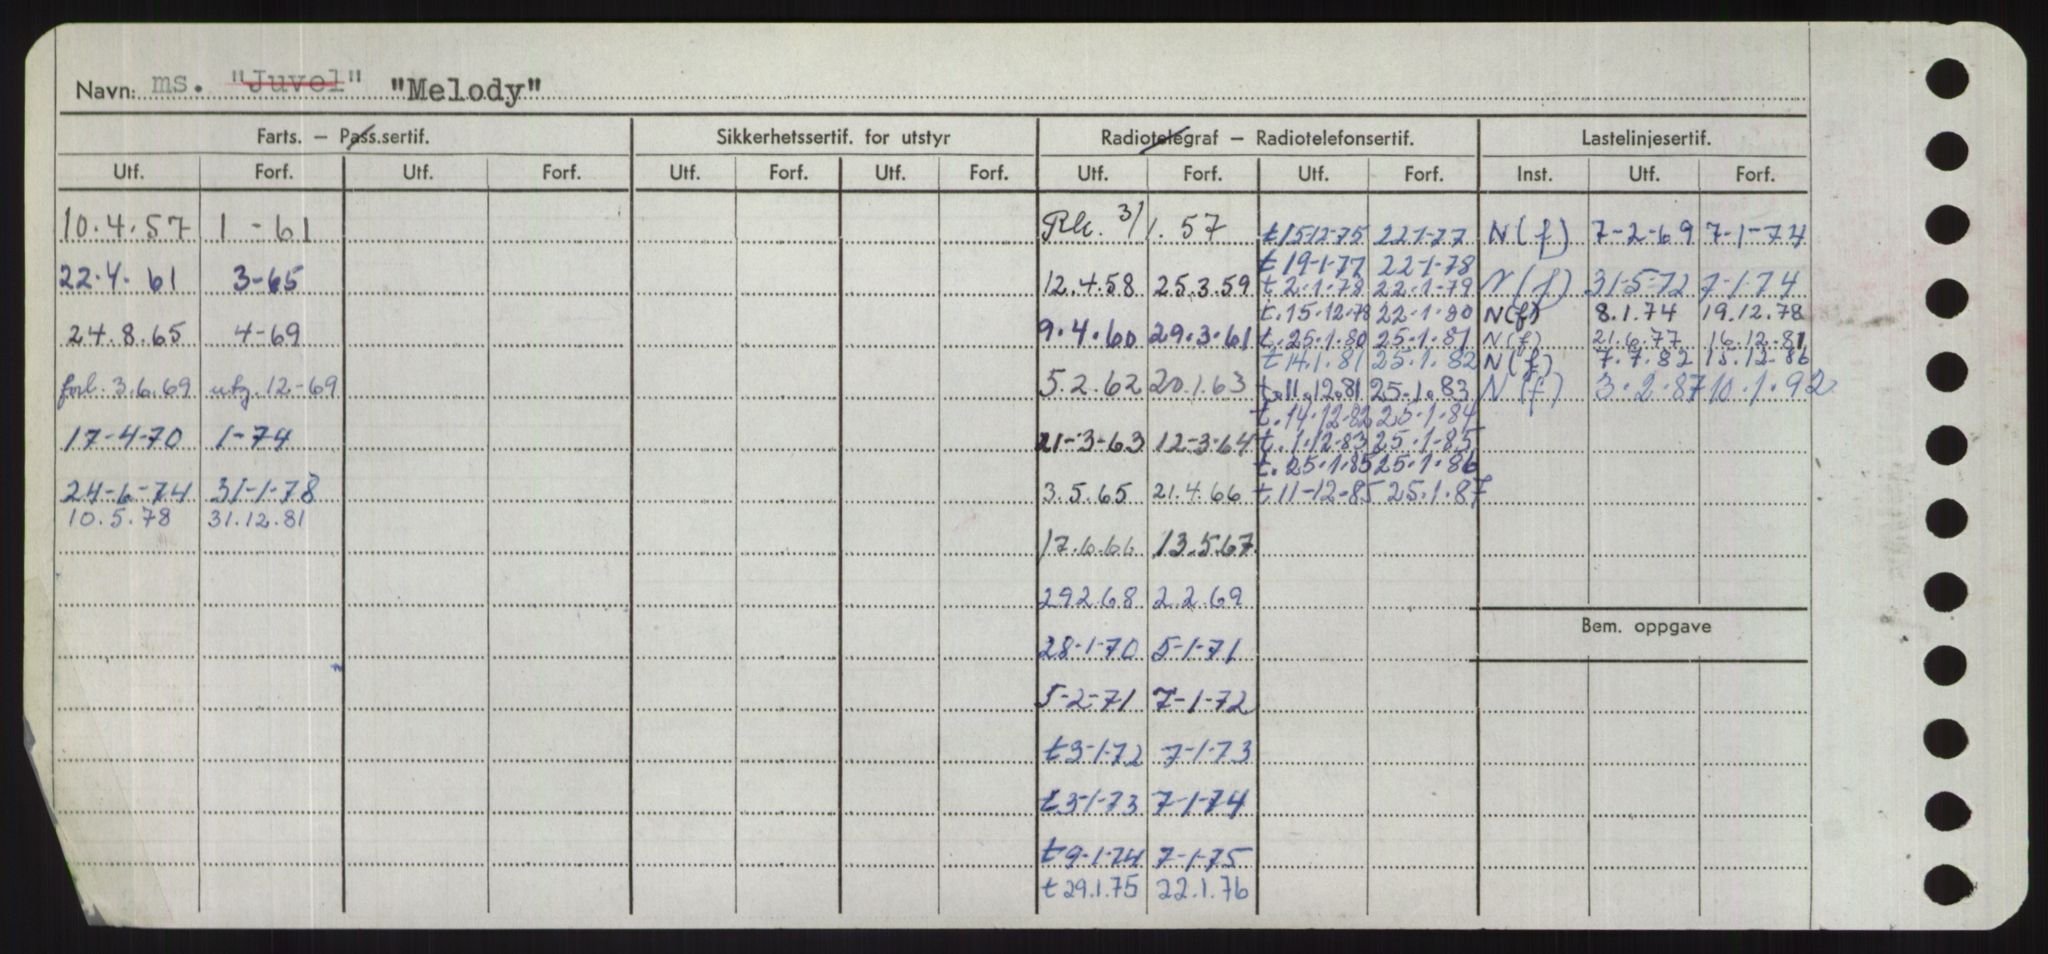 Navn: ms. "Juvel" "Melody"
Farts. — Pass.sertif. Sikkerhetssertif. for utstyr Radiotelegraf — Radiotelefonsertif. Lastelinjesertif.
Utf. Forf. Utf. Forf. Utf. Forf. Utf. Forf. Utf. Forf. Utf. Forf. Inst. Utf. Forf.
10.4.57 1 - 61 3/1.57 t15-12-75 22-1-77 N(f) 7-2-69 7-1-74
t 19-1-77 22-1-78
22.4.61 3-65 12.4.58 25.3.59 t.2.1.78 22.1-79 N(f) 31-5-72 7-1-74
t.15.12.78 22.1.80 N(f) 8.1.74 19.12.78
24.8.65 4-69 9.4.60 29.3.61 t.25.1.80 25.1.81 N(f) 21.6.77 16.12.81
t14.1.81 25.1.82 N(f) 7.7.82 15.12.86
forl. 3.6.69 utg. 12-69 5.2.62 20.1.63 t.11.12.81 25.1.83 N(f) 3.2.87 10.1.92
t.14.12.82 25.1.84
17-4-70 1-74 21-3-63 12-3-64 t.1.12.83 25.1.85
t.25.1.85 25.1.86
24-6-74 31-1-78 3.5.65 21.4.66 t 11-12-85 25.1.87
10.5.78 31.12.81
17.6.66 13.5.67
29268 2.2.69
Bem. oppgave
28-1-70 5-1-71
5-2-71 7-1-72
t3-1-72 7-1-73
t3-1-73 7-1-74
t9-1-74 7-1-75
t 29.1.75 22.1.76